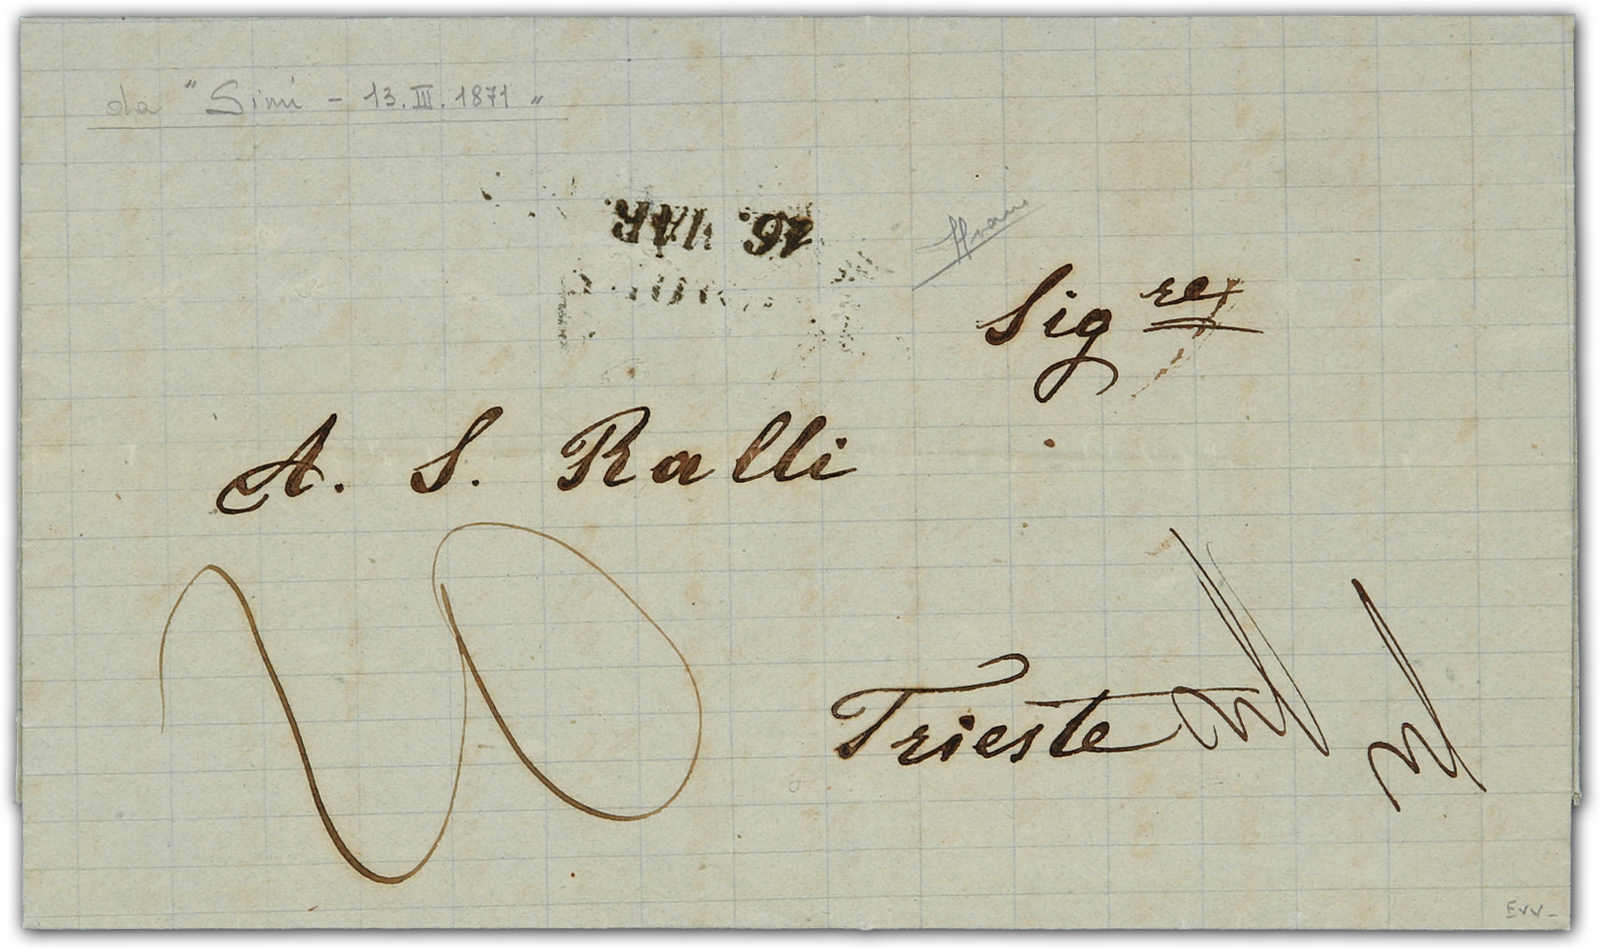 da "Simi - 13.III.1871"
26. MAR.
Sig re
A. S. Ralli
Trieste
Evv-